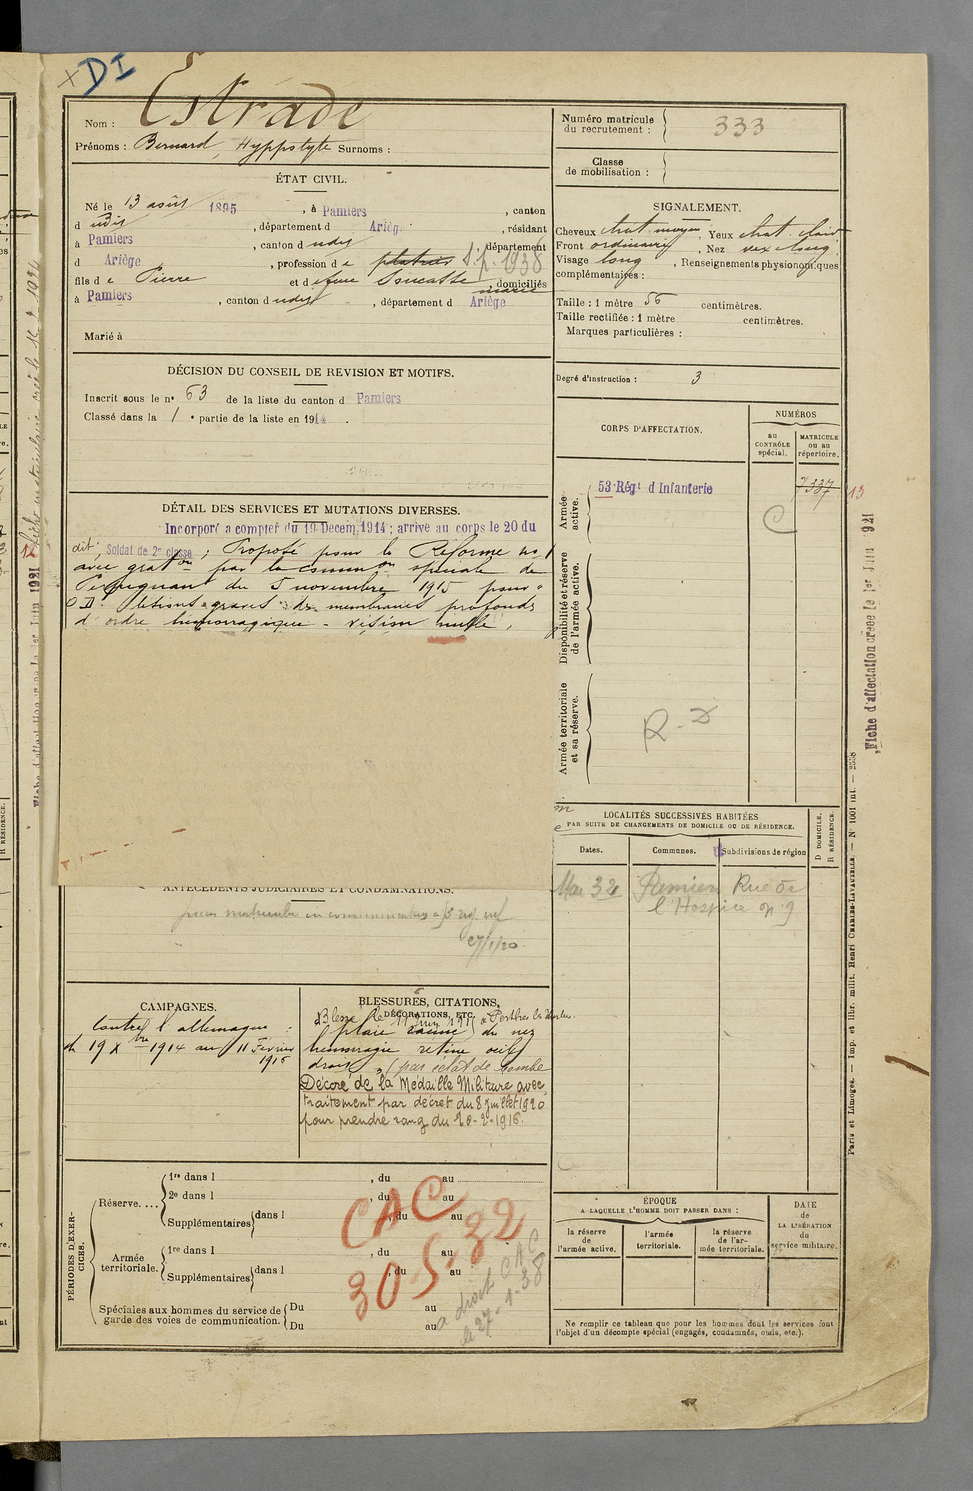 DI
Nom : Estrade
Prénoms : Bernard, Hyppolyte Surnoms :
ÉTAT CIVIL.
Né le 13 août 1895, à Pamiers, canton
d udis, département d Ariège, résidant
à Pamiers, canton d udis, département
d Ariège, profession d e platrier S.P. 1938
fils d e Pierre et d e feue Soucasse, domiciliés
à Pamiers, canton d udis, département d Ariège
Marié à
DÉCISION DU CONSEIL DE REVISION ET MOTIFS.
Inscrit sous le n° 63 de la liste du canton d Pamiers
Classé dans la 1 e partie de la liste en 1914.
DÉTAIL DES SERVICES ET MUTATIONS DIVERSES.
Incorporé a compter du 19 Decem. 1914 ; arrive au corps le 20 du
dit ; Soldat de 2e classe ; Proposé pour la Réforme no 1
avec graton par la common spéciale de
Perpignan du 5 novembre 1915 pour
O D : lésions graves des membranes profonds
d'ordre hémorragique - vision nulle,
ANTÉCÉDENTS JUDICIAIRES ET CONDAMNATIONS.
27/1/20
CAMPAGNES.
Contre l'allemagne :
du 19 Xbre 1914 au 11 Février
1916
BLESSURES, CITATIONS,
DÉCORATIONS, ETC.
Blessé le 11 juin 1915 à Perthes les Hurlus
plaie du nez
hémorragie rétine oeil
droit, (par éclat de bombe
Décoré de la Médaille Militaire avec
traitement par décret du 8 juillet 1920
pour prendre rang du 28-2-1916.
PÉRIODES D'EXERCICES.
Réserve....
1re dans l , du au
2e dans l , du au
Supplémentaires dans l , du au
Armée territoriale.
1re dans l , du au
Supplémentaires dans l , du au
Spéciales aux hommes du service de garde des voies de communication.
Du au
Du au
CAC
30.5.32
a droit CAC
le 27-1-38
Numéro matricule du recrutement : 333
Classe de mobilisation :
SIGNALEMENT.
Cheveux chat. moyen, Yeux chat. clair
Front ordinaire, Nez vex long
Visage long, Renseignements physionomiques
complémentaires :
Taille : 1 mètre 56 centimètres.
Taille rectifiée : 1 mètre centimètres.
Marques particulières :
Degré d'instruction : 3
CORPS D'AFFECTATION.
NUMÉROS
au CONTRÔLE spécial.
MATRICULE ou au répertoire.
Armée active.
53 Régt d'Infanterie
7337
13
C
Disponibilité et réserve de l'armée active.
Armée territoriale et sa réserve.
R. D
LOCALITÉS SUCCESSIVES HABITÉES
PAR SUITE DE CHANGEMENTS DE DOMICILE OU DE RÉSIDENCE.
Dates.
Communes.
Subdivisions de région
D DOMICILE.
R RÉSIDENCE.
Mai 32 Pamiers Rue de
l'Hospice n° 9
ÉPOQUE
A LAQUELLE L'HOMME DOIT PASSER DANS :
la réserve de l'armée active.
l'armée territoriale.
la réserve de l'armée territoriale.
DATE de LA LIBÉRATION du service militaire.
Ne remplir ce tableau que pour les hommes dont les services font
l'objet d'un décompte spécial (engagés, condamnés, omis, etc.).
Fiche d'affectation créée le 1er Juin 1921
Paris et Limoges. — Imp. et libr. milit. Henri CHARLES-LAVAUZELLE. — N° 1001 int. — 2558